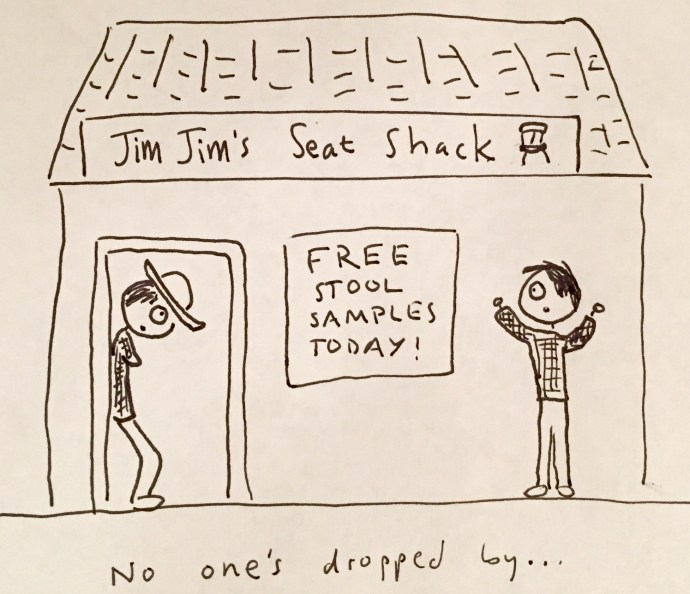 Jim Jim's Seat Shack
FREE
STOOL
SAMPLES
TODAY!
No one's dropped by...